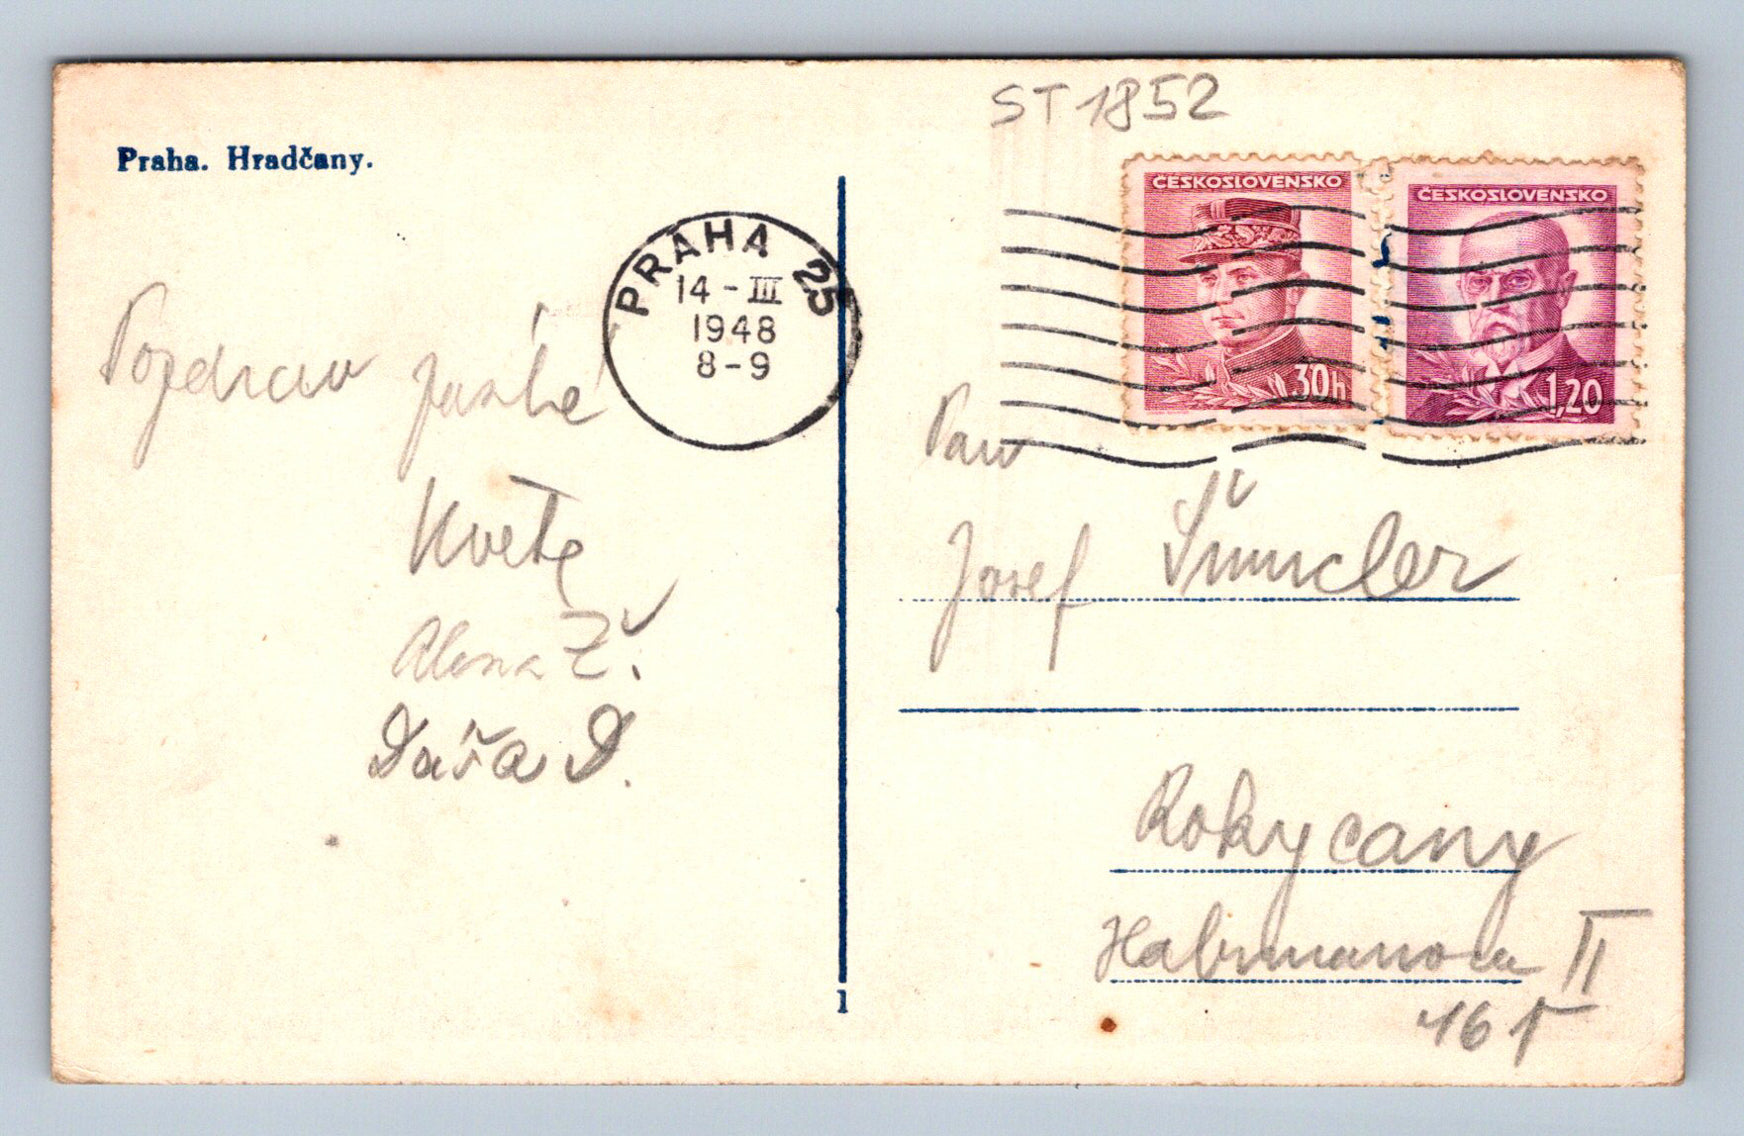 ST 1852
Praha. Hradčany.
ČESKOSLOVENSKO
30h
ČESKOSLOVENSKO
1,20
PRAHA 25
14 - III
1948
8-9
Pozdrav
Alena Ž.
Dáša D.
Pan
Josef
Rokycany
Habrmanova II
16
1